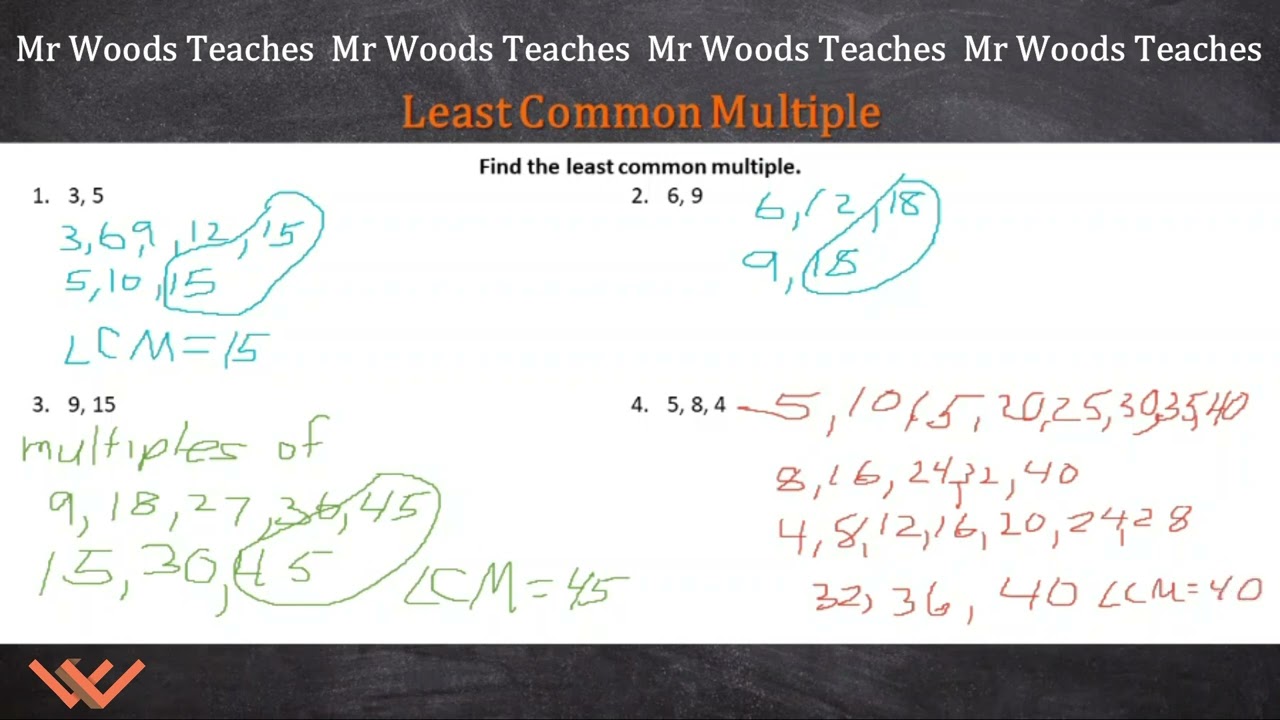 Mr Woods Teaches Mr Woods Teaches Mr Woods Teaches Mr Woods Teaches
Least Common Multiple
Find the least common multiple.
1. 3, 5
3, 6, 9, 12, 15
5, 10, 15
LCM = 15
2. 6, 9
6, 12, 18
9, 18
3. 9, 15
multiples of
9, 18, 27, 36, 45
15, 30, 45
LCM = 45
4. 5, 8, 4
5, 10, 15, 20, 25, 30, 35, 40
8, 16, 24, 32, 40
4, 8, 12, 16, 20, 24, 28
32, 36, 40 LCM = 40